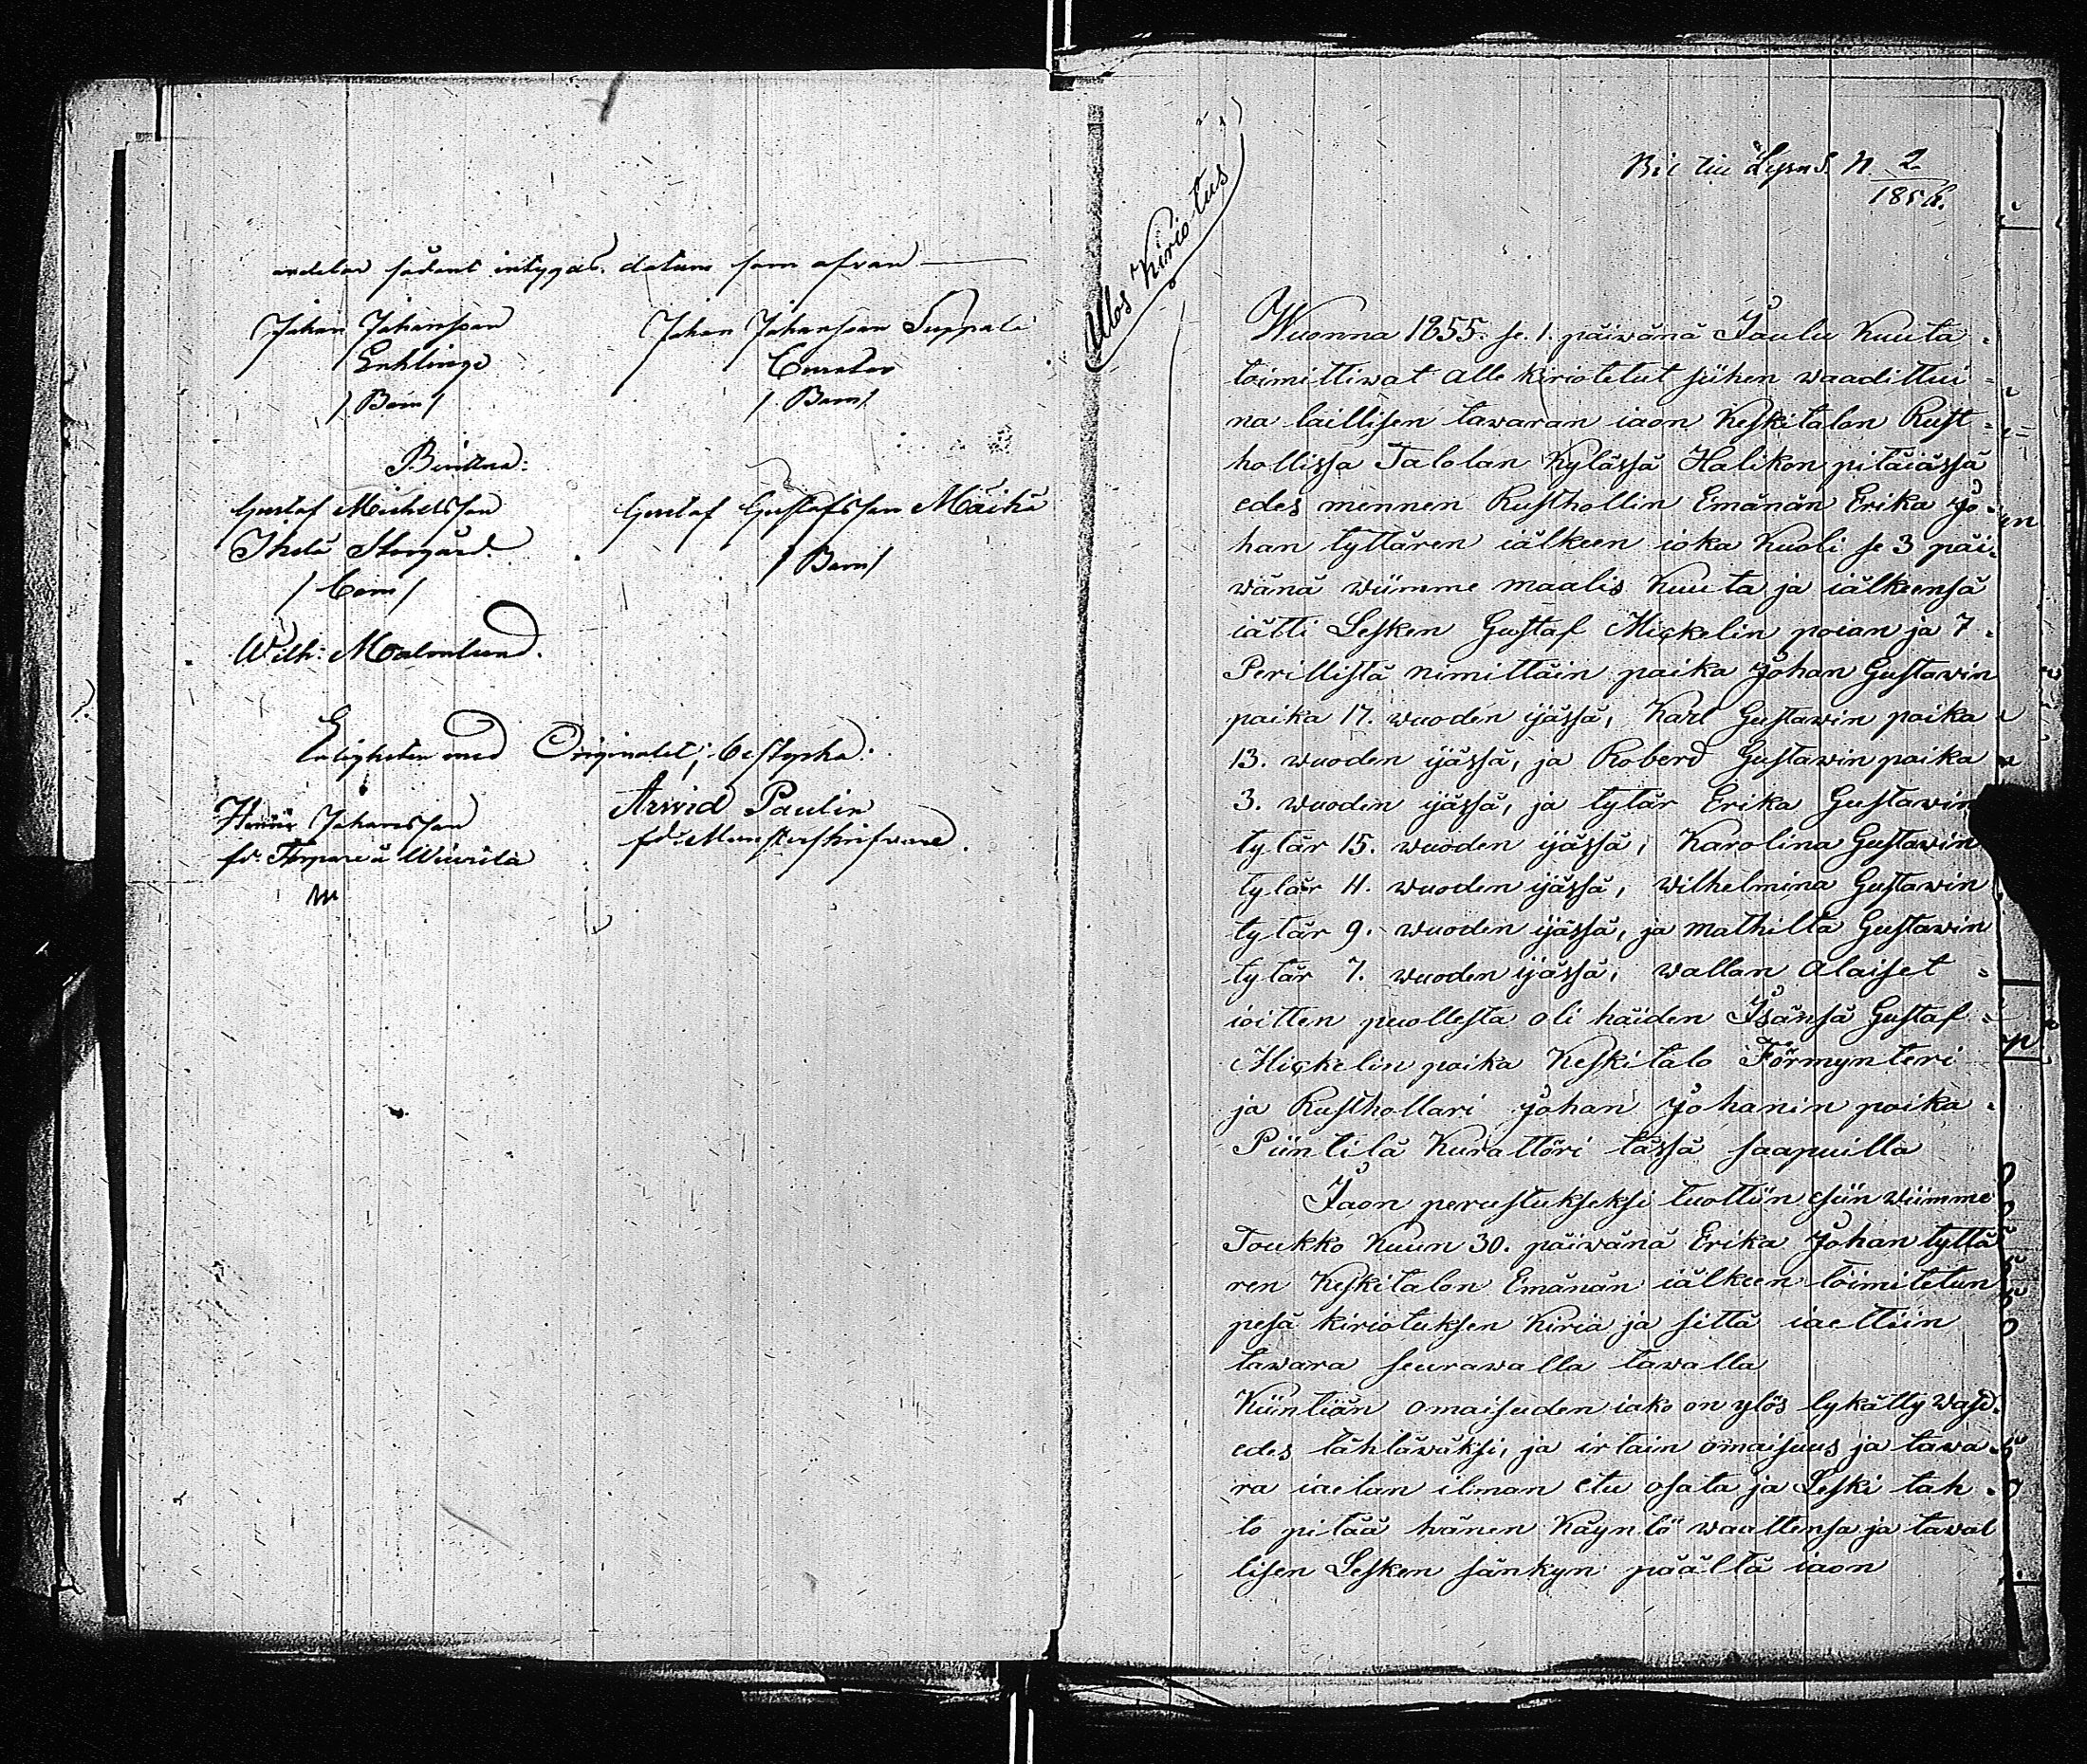 sådant intygas. datum som ofvan
Johan Johansson
Enklinge
/ Bom /
Johan Johansson Suppala
Curator
/ Bom /
Bevittna:
Gustaf Michelsson
Storgård
/ Bom /
Gustaf Gustafsson Mäikä
/ Bom /
Wilh: Malmlund.
Enligheten med Originalet, bestyrka:
Johansson
fd. Torpare å Wiurila
Arvid Paulin
fd. Mönsterskrifvare.
Ulos Kirio tus
Bil till N. 2
Wuonna 1855. se. 1. päiwänä Jaulu Kuuta
toimittiwat alle kiriotetut siihen waadittui-
na laillisen tawaran iaon Keskitalon Rust-
hollissa Talolan Kylässä Halikon pitäiässä
edes mennen Rusthollin Emänän Erika Jo-
han tyttären iälkeen ioka Kuoli se 3 päi-
wänä wiimme maalis Kuuta ja iälkeensä
iätti Lesken Gustaf Mickelin poian ja 7.
Perillistä nimittäin paika Johan Gustawin
paika 17. wuoden ijässä, Karl Gustawin paika
13. wuoden ijässä, ja Roberd Gustawin paika
3. wuoden ijässä, ja tytär Erika Gustawin
tytär 15. wuoden ijässä, Karolina Gustawin
tytär 11. wuoden ijässä, Wilhelmina Gustawin
tytär 9. wuoden ijässä, ja mathilta Gustawin
tytär 7. wuoden ijässä, wallan alaiset
ioitten puollesta oli häiden Isänsä Gustaf
Mickelin poika Keskitalo Förmynteri
ja Rusthollari Johan Johanin poika
Piintilä Kurattöri tässä saapuilla
Jaon perustukseksi tuottiin esiin wiimme
Toukko Kuun 30. päiwänä Erika Johan tyttä
ren Keskitalon Emänän iälkeen toimitetun
pesä kiriotuksen Kiria ja sittä iaettiin
tawara seurawalla tawalla
Kiintiän omaisuden iako on ylös lykätty wasd.
edes tähtäwäksi, ja irtain omaisuus ja tawa-
ra iaetan ilman etu osata ja Leski tah-
to pitää hänen Käyntö waattensa ja tawal
lisen Lesken sänkyn päältä iaon